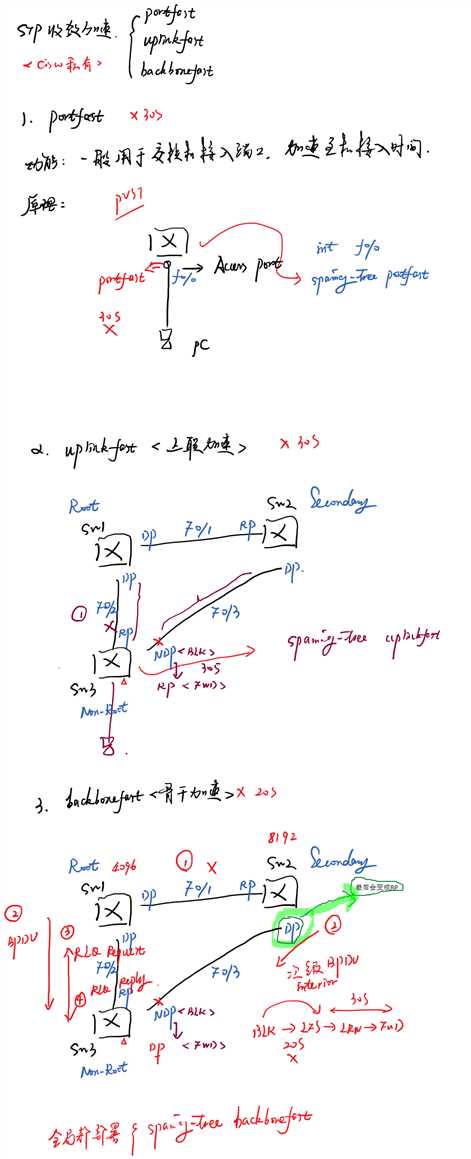 STP 收敛加速.
portfast
uplinkfast
backbonefast
<Cisco私有>
1. portfast ×30S
功能: 一般用于交换机接入端口, 加速主机接入时间.
原理:
PVST
portfast
f0/0
Access port
int f0/0
30S
×
PC
2. uplinkfast <上联加速> ×30S
Root
SW1
DP
f0/1
RP
SW2
Secondary
DP
DP.
①
f0/2
×
f0/3
RP
×
NDP <BLK>
30S
RP <FWD>
SW3
Non-Root
3. backbonefast <骨干加速> ×20S
Root
4096
SW1
①
×
8192
SW2
Secondary
DP
f0/1
RP
最后会变成RP
DP
②
BPDU
③
DP
RLQ Request
f0/2
④
RLQ Reply
RP
f0/3
②
次级BPDU
Inferior
×
NDP <BLK>
DP
<FWD>
30S
BLK → LIS → LRN → FWD
20S
×
SW3
Non-Root
全局都部署